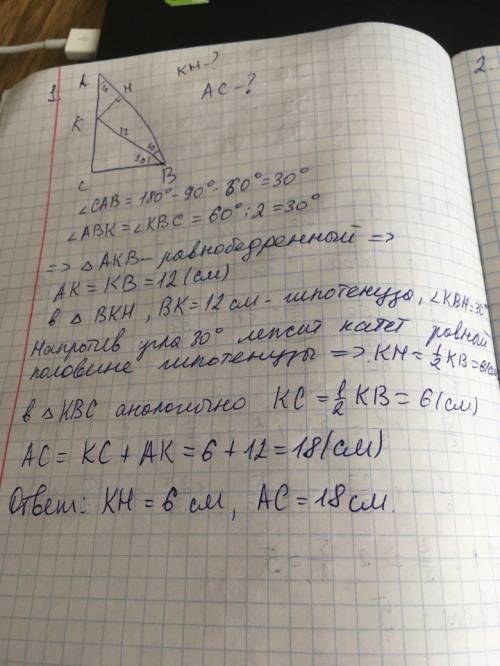 KH-?
2.
AC-?
1.
A
H
K
12
30°
C
B
∠CAB = 180°- 90°- 60° = 30°
∠ABK = ∠KBC = 60° : 2 = 30°
=> △ AKB - равнобедренный =>
AK = KB = 12 (см)
в △ BKH, BK = 12 см - гипотенуза, ∠KBH = 30°
Напротив угла 30° лежит катет равной
половине гипотенузы => KH = 1/2 KB = 6(см)
в △ KBC аналогично KC = 1/2 KB = 6 (см)
AC = KC + AK = 6 + 12 = 18 (см)
Ответ: KH = 6 см, AC = 18 см.